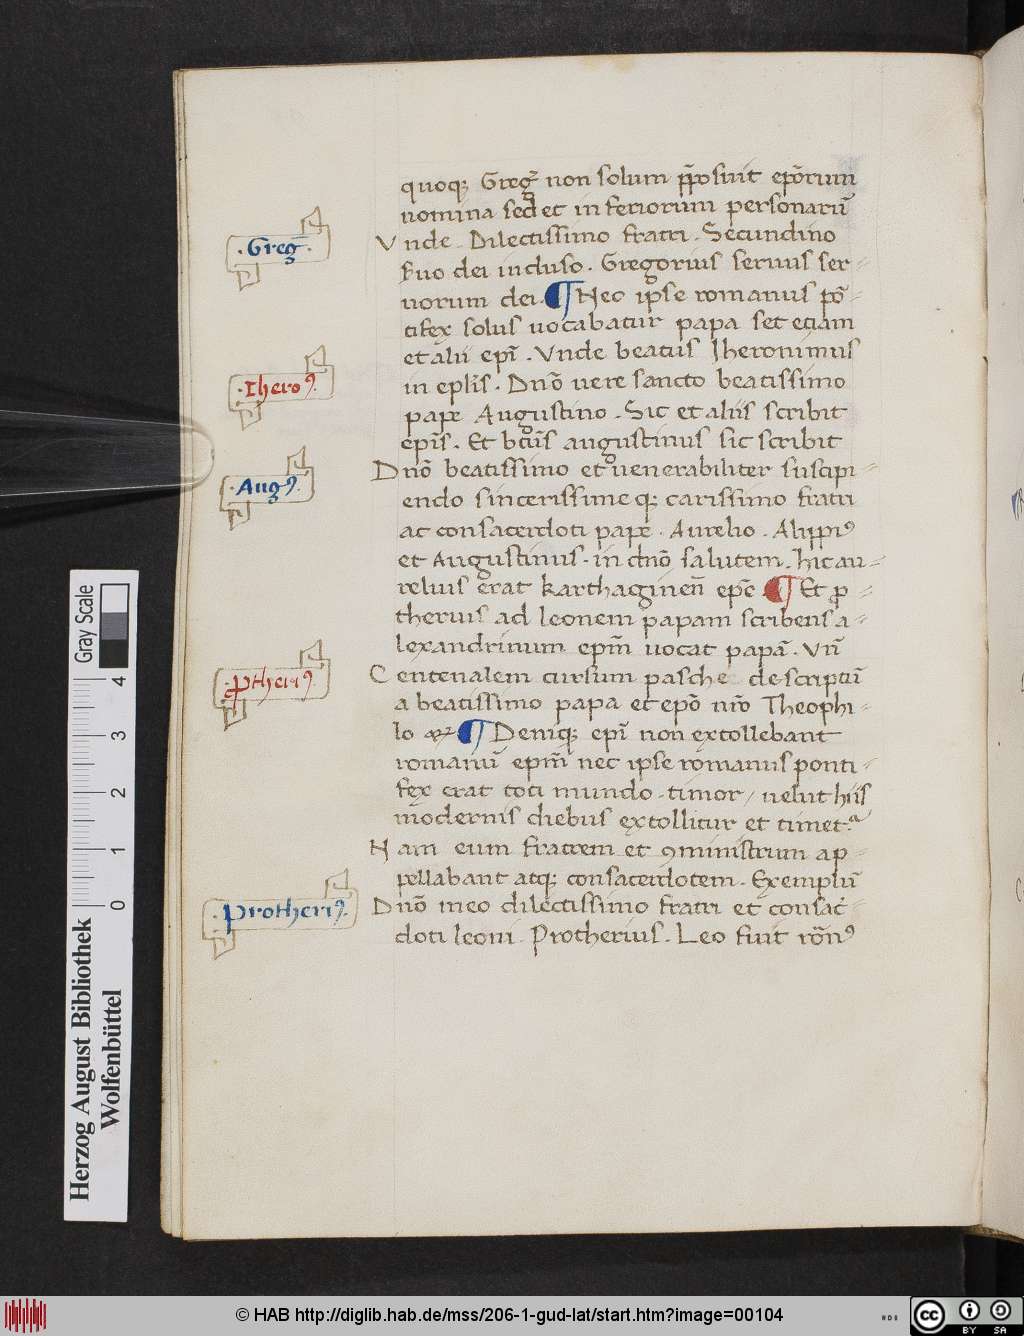 quoq; Greg᷒ non solum p̄posuit ep̄orum
nomina sed et inferiorum personarū
Vnde. Dilectissimo fratri. Secundino
suo dei incluso. Gregorius seruus ser
·Greg·
uorum dei. ¶ Nec ipse romanus pō
tifex solus uocabatur papa set etiam
et alii ep̄i. Vnde beatus Iheronimus
in eplīs. Dn̄o uere sancto beatissimo
·Iheroꝰ·
pape Augustino. Sic et aliis scribit
ep̄is. Et bt̄us augustinus sic scribit
Dn̄o beatissimo et uenerabiliter suscipi
endo sincerissime q; carissimo fratri
·Augꝰ·
ac consacerdoti pape. Aurelio. Alippiꝰ
et Augustinus. in dn̄o salutem. hic au
relius erat karthaginen̄ ep̄c ¶ Et ꝓ
therius ad leonem papam scribens a
lexandrinum ep̄m uocat papā. Vn̄
Centenalem cursum pasche descriptū
·ꝓtheriꝰ·
a beatissimo papa et ep̄o nr̄o Theophi
lo ¶ Deniq; ep̄i non extollebant
romanū ep̄m nec ipse romanus ponti
fex erat toti mundo timor, uelut hiis
modernis diebus extollitur et timet᷒
Nam eum fratrem et ꝯministrum ap
pellabant atq; consacerdotem. Exemplū
Dn̄o meo dilectissimo fratri et consac̄
·Protheriꝰ·
doti leoni. Protherius. Leo fuit rōnꝰ
Gray Scale
4
3
2
1
0
Herzog August Bibliothek
Wolfenbüttel
© HAB http://diglib.hab.de/mss/206-1-gud-lat/start.htm?image=00104
cc BY SA